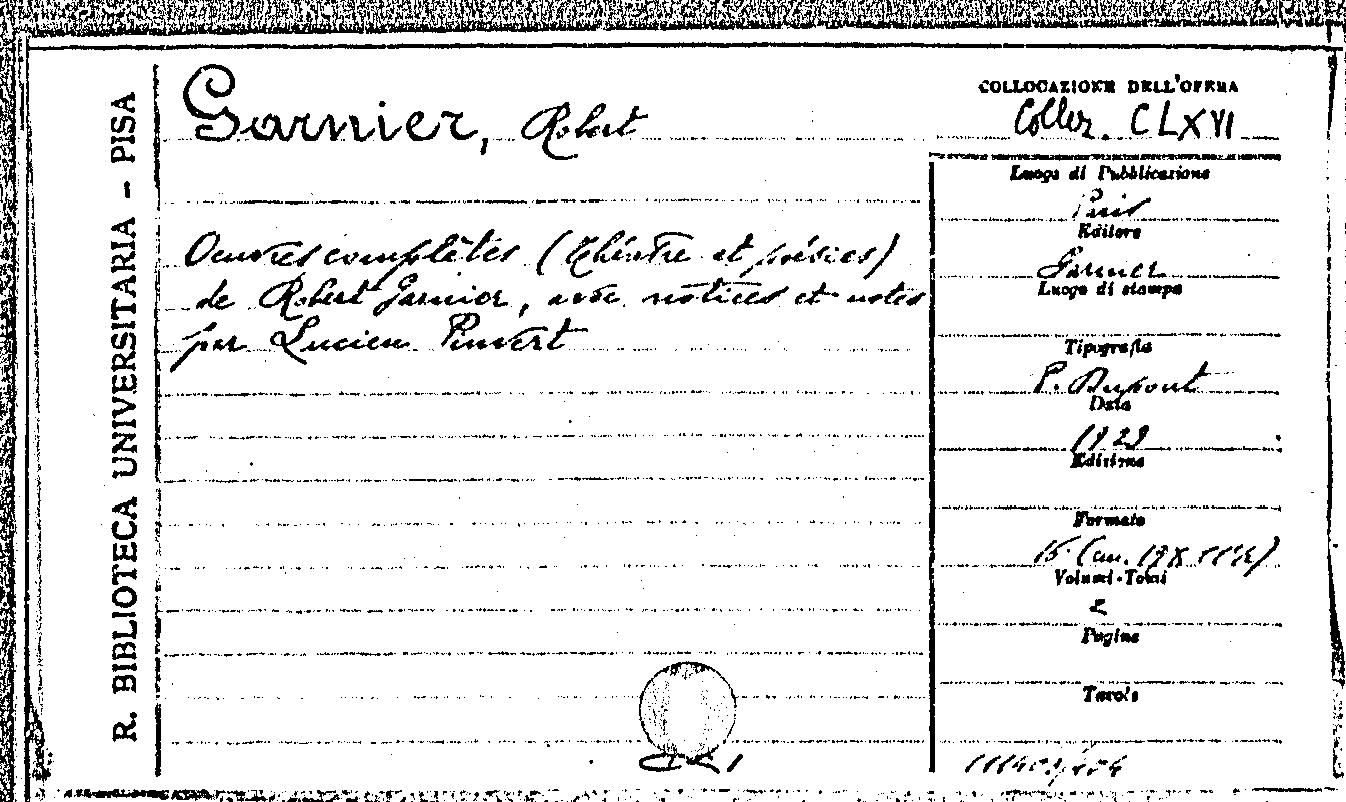 R. BIBLIOTECA UNIVERSITARIA - PISA
Garnier, Robert
Oeuvres complètes (théatre et poésies)
de Robert Garnier, avec notices et notes
par Lucien Pinvert
COLLOCAZIONE DELL'OPERA
Collez. CLXVI
Luogo di Pubblicazione
Paris
Editore
Garnier
Luogo di stampa
Tipografia
P. Dupont
Data
1923
Edizione
Formato
16° (cm.
Volumi-Tomi
2
Pagine
Tavole